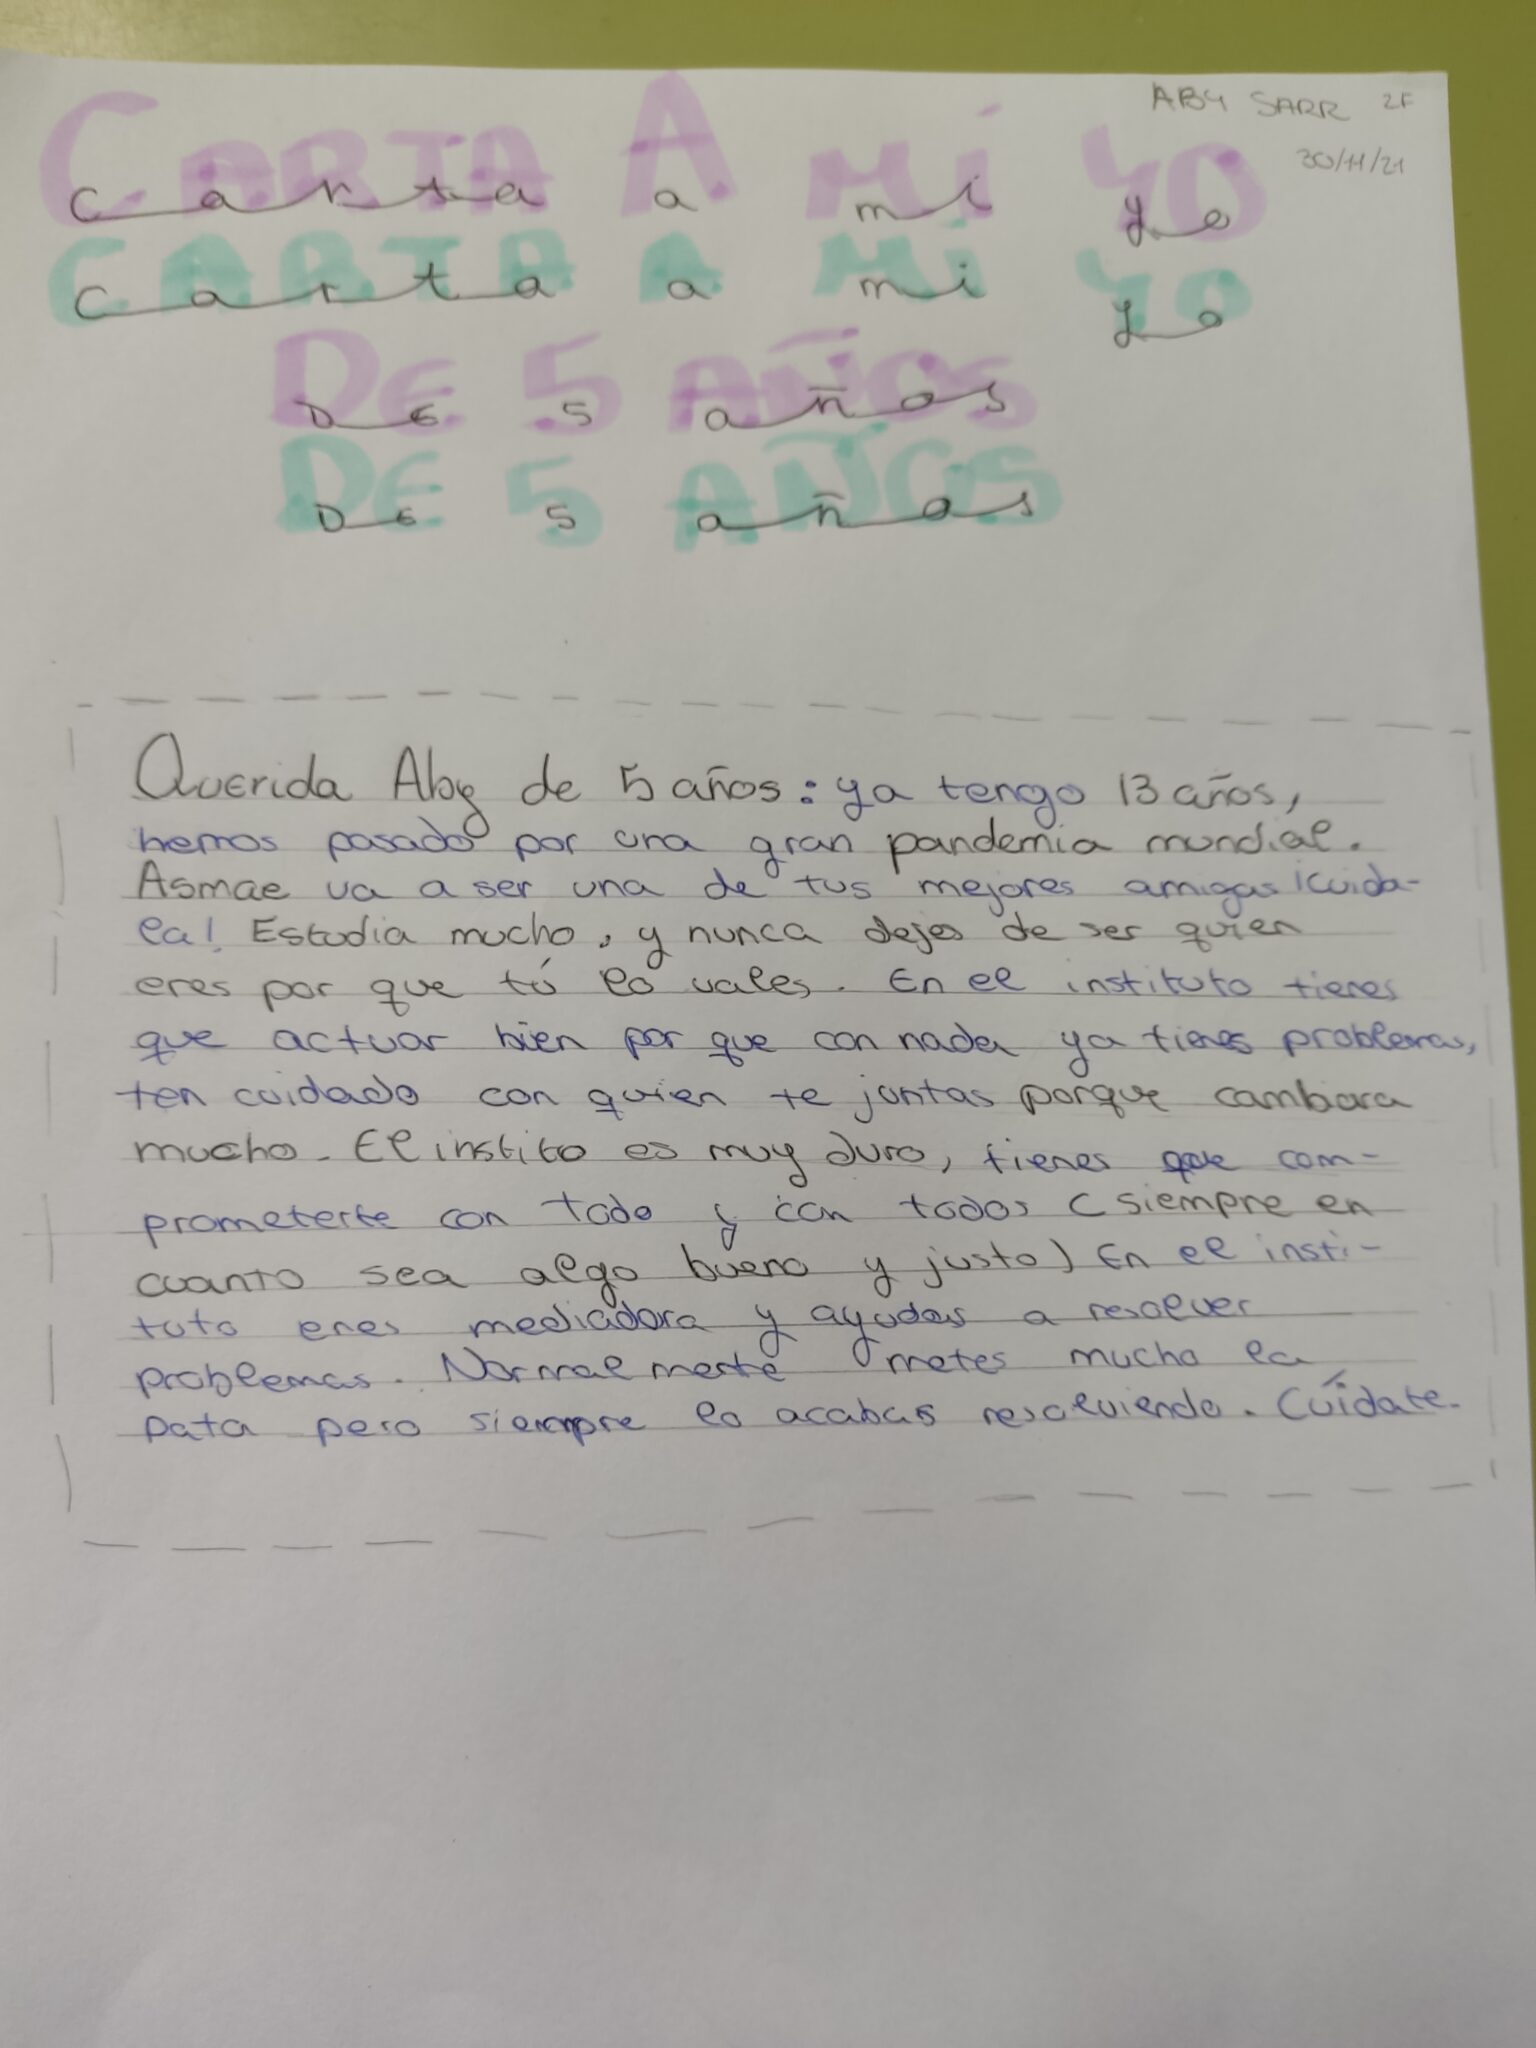 ABY SARR 2F
30/11/21
CARTA A MI YO
Carta a mi yo
CARTA A MI YO
Carta a mi yo
DE 5 AÑOS
De 5 años
DE 5 AÑOS
De 5 años
Querida Aby de 5 años: ya tengo 13 años,
hemos pasado por una gran pandemia mundial.
Asmae va a ser una de tus mejores amigas ¡cuida-
la! Estudia mucho, y nunca dejes de ser quien
eres por que tú lo vales. En el instituto tienes
que actuar bien por que con nada ya tienes problemas,
ten cuidado con quien te juntas porque cambiara
mucho. El instito es muy duro, tienes que com-
prometerte con todo y con todos (siempre en
cuanto sea algo bueno y justo) En el insti-
tuto eres mediadora y ayudas a resolver
problemas. Normalmente metes mucho la
pata pero siempre lo acabas resolviendo. Cuídate.